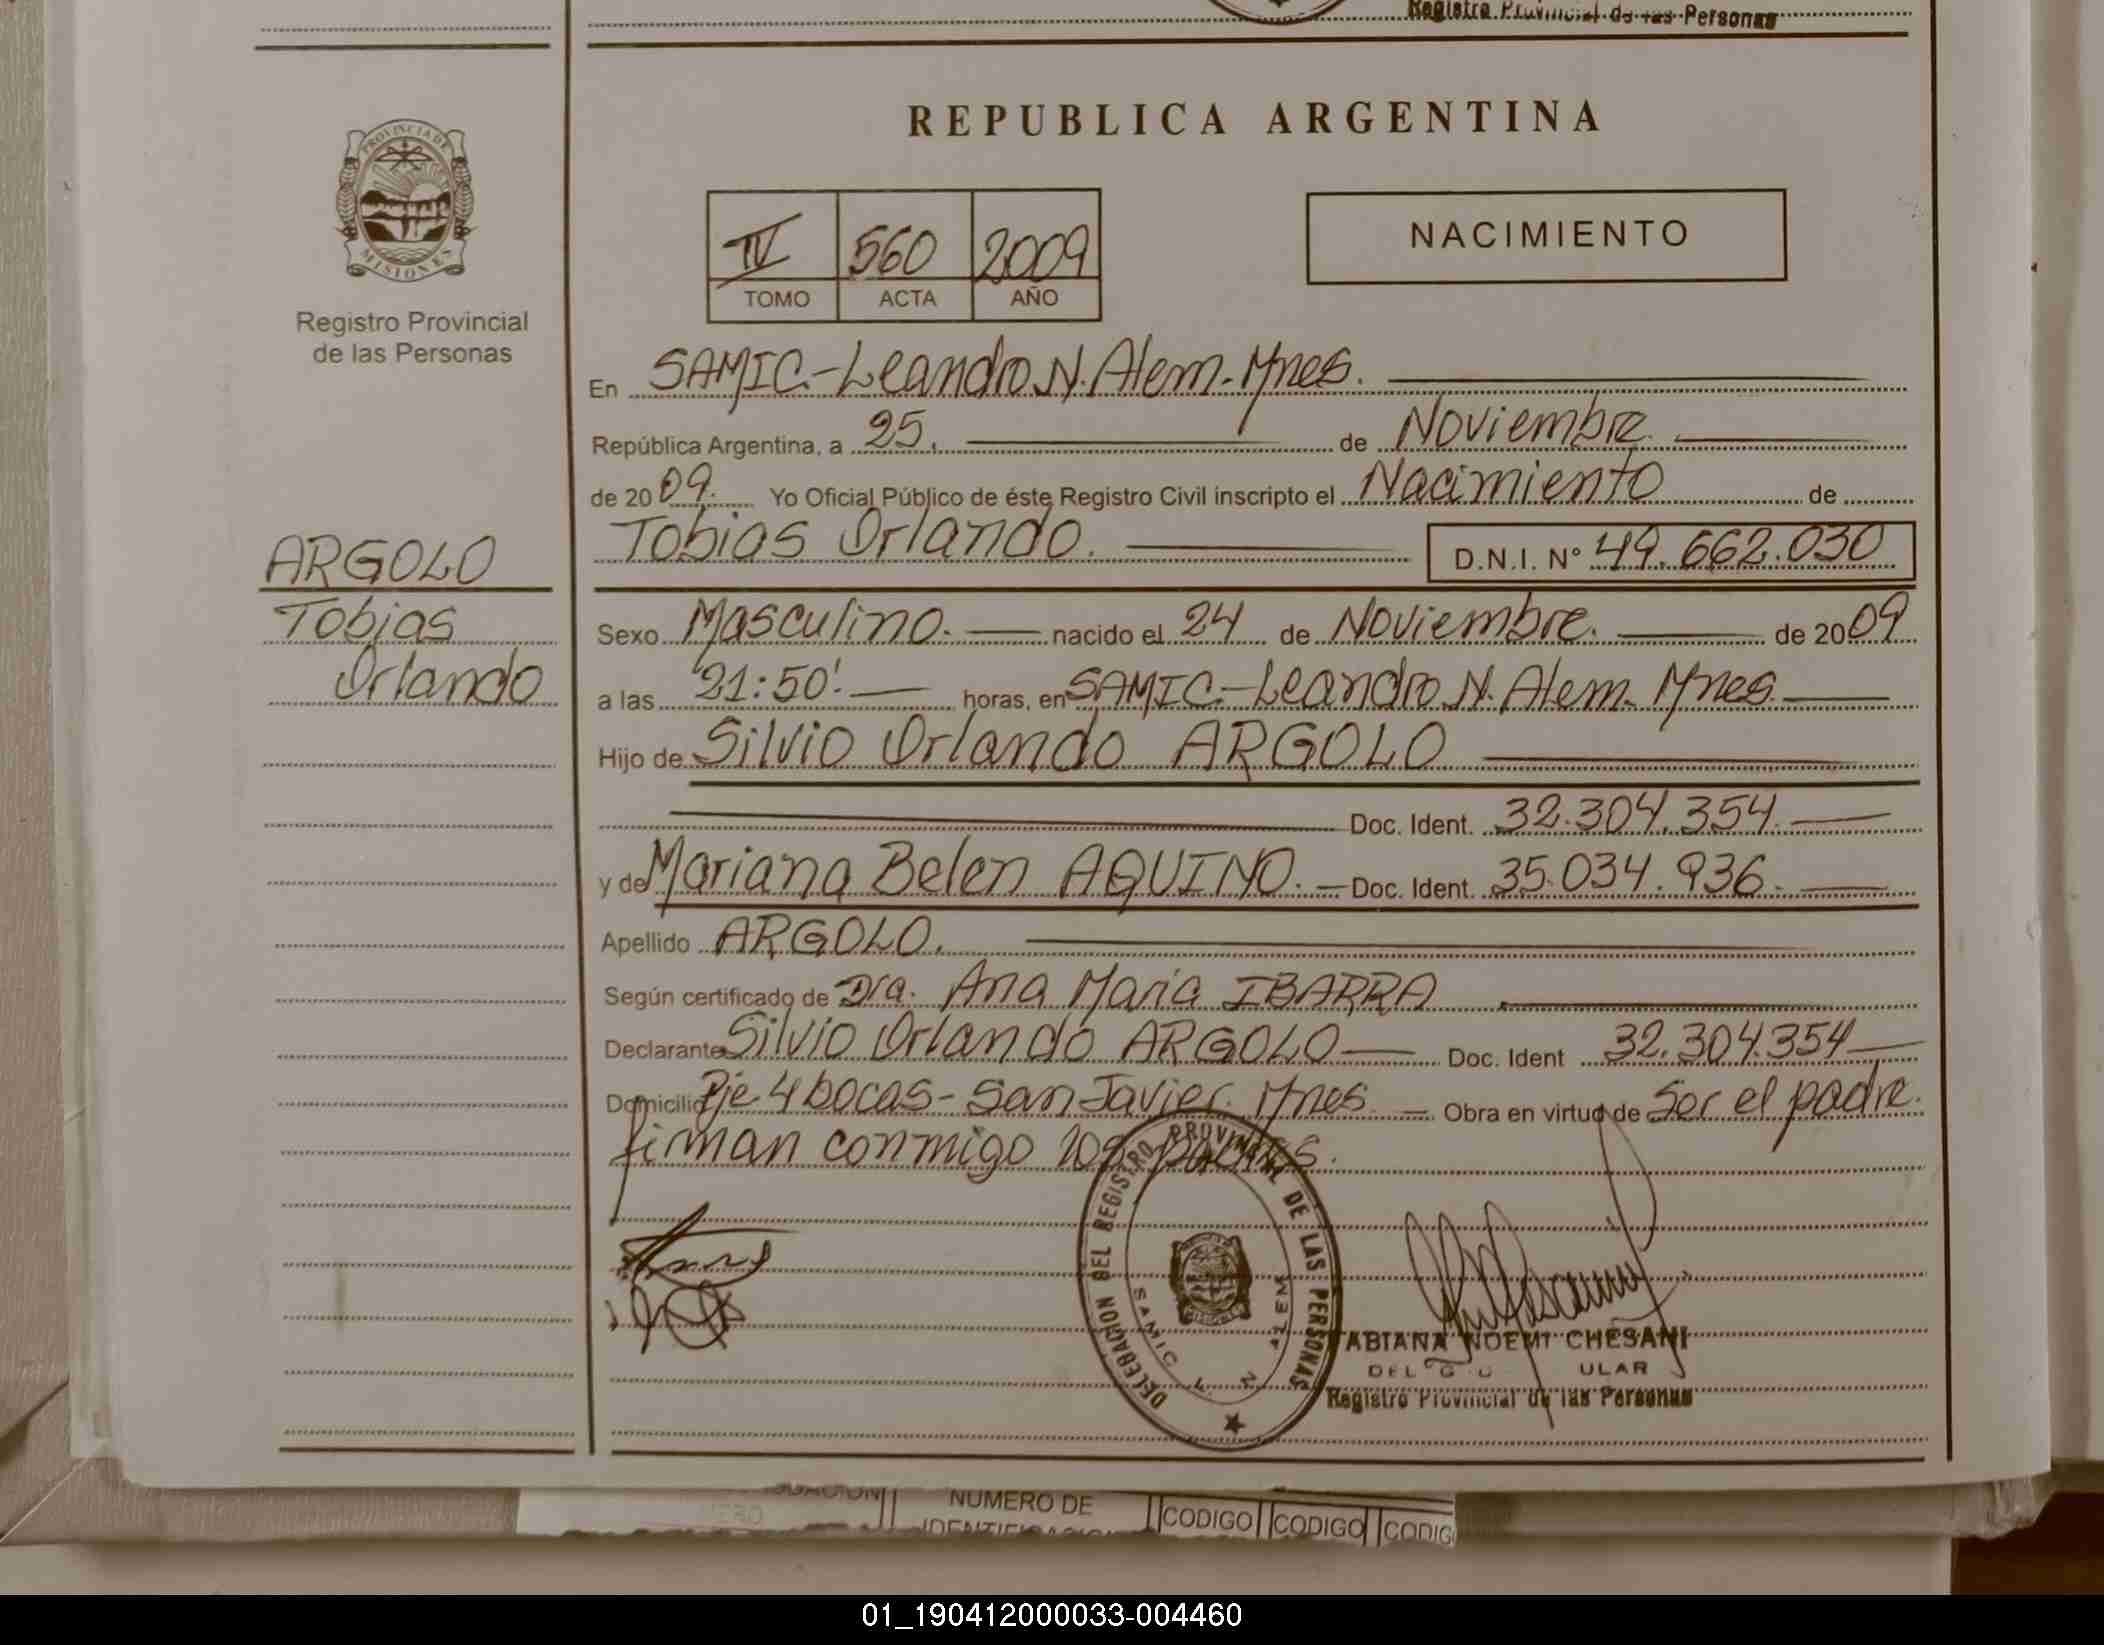 Registro Provincial de las Personas
REPUBLICA ARGENTINA
PROVINCIA DE
MISIONES
Registro Provincial
de las Personas
IV 560 2009
TOMO ACTA AÑO
NACIMIENTO
En SAMIC-Leandro N. Alem-Mnes.
República Argentina, a 25. de Noviembre.
de 2009. Yo Oficial Público de éste Registro Civil inscripto el Nacimiento de
Tobias Orlando. D.N.I. N° 49.662.030
ARGOLO
Tobias
Orlando
Sexo Masculino. nacido el 24 de Noviembre. de 2009
a las 21:50'. horas, en SAMIC-Leandro N. Alem-Mnes.
Hijo de Silvio Orlando ARGOLO
Doc. Ident. 32.304.354.
y de Mariana Belen AQUINO. Doc. Ident. 35.034.936.
Apellido ARGOLO.
Según certificado de Dra. Ana Maria IBARRA
Declarante Silvio Orlando ARGOLO Doc. Ident 32.304.354
Domicilio Pje 4 bocas-San Javier. Mnes. Obra en virtud de Ser el padre.
firman conmigo los padres.
DELEGACION DEL REGISTRO PROVINCIAL DE LAS PERSONAS
SAMIC L. N. ALEM
MISIONES
FABIANA NOEMI CHESANI
Registro Provincial de las Personas
NUMERO DE
CODIGO CODIGO CODIG
01_190412000033-004460